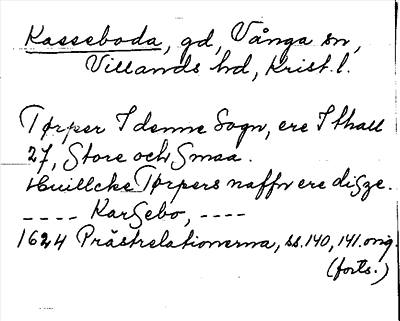 Kasseboda, gd, Vånga sn,
Villands hd, Krist. l.
Tørper I denne Sogn, ere I thall
27, Store och Smaa.
Huillcke Tørpers naffn ere diße.
---- Karßebo, ----
1624 Prästrelationerna, ss. 140, 141. orig.
(forts.)